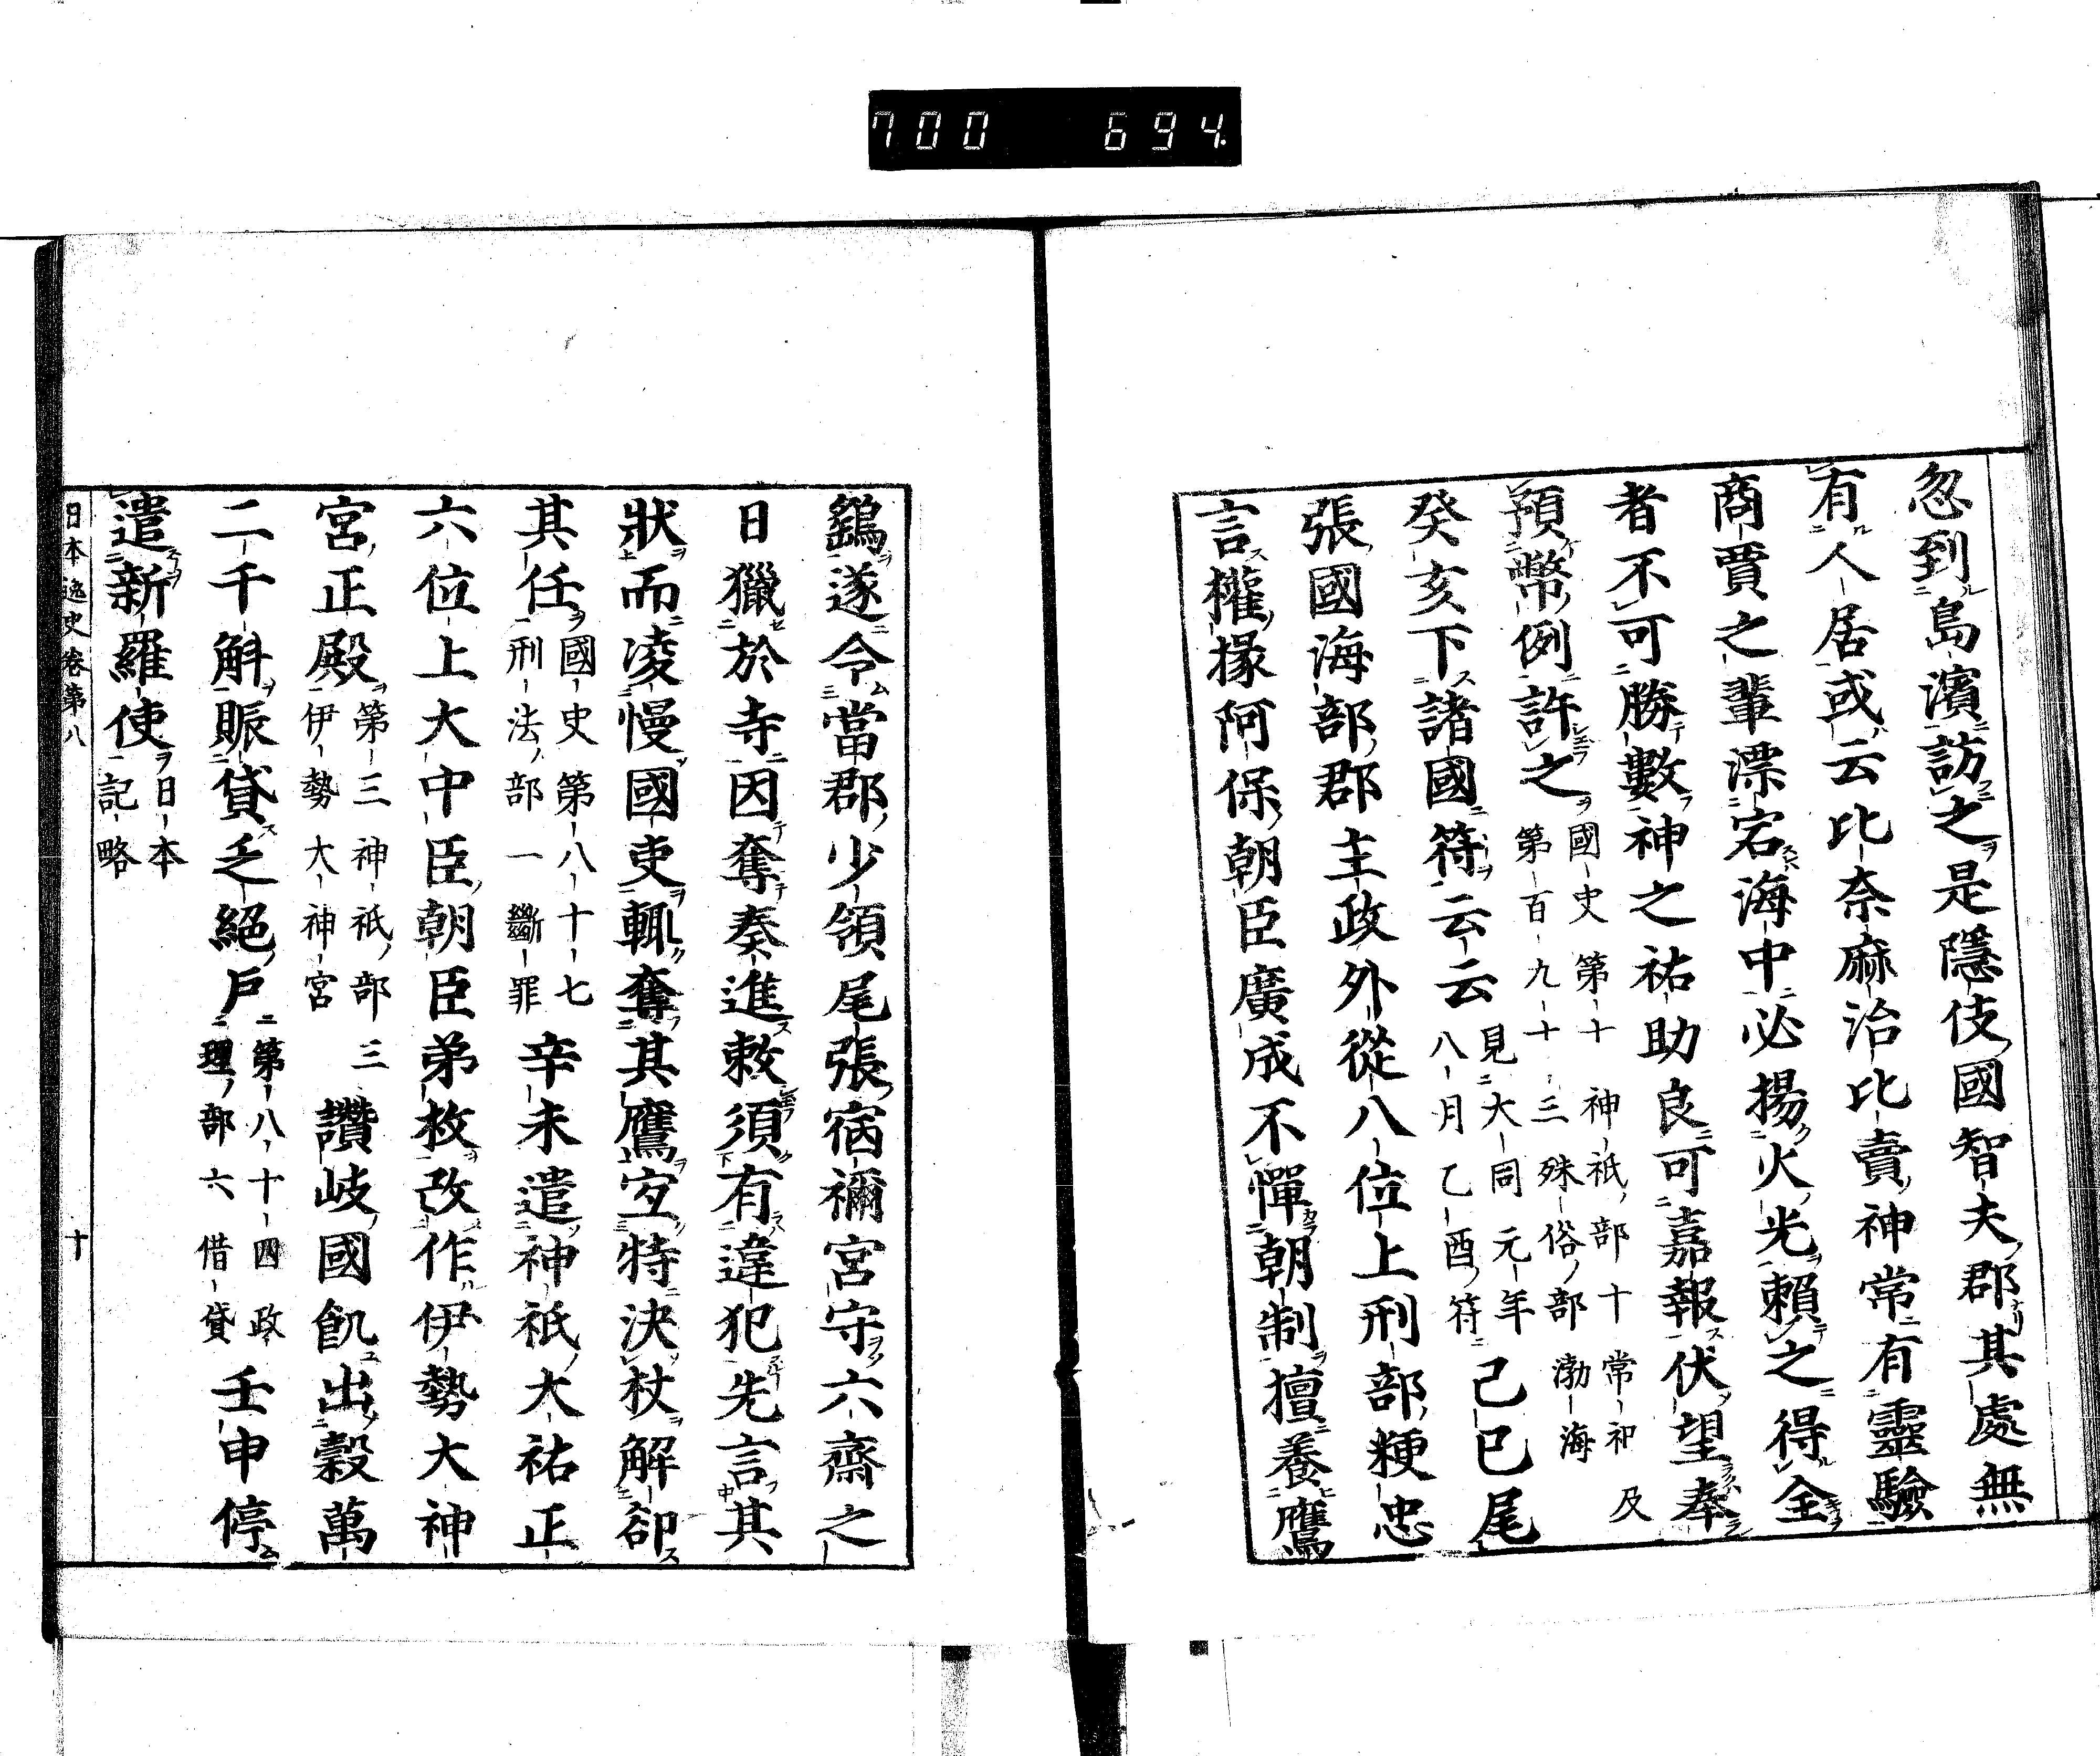 700 694.
忽到島濱訪之是隱伎國智夫郡其處無
有人居或云比奈麻治比賣神常有靈驗
商賈之輩漂宕海中必揚火光賴之得全
者不可勝數神之祐助良可嘉報伏望奉
預幣例許之國史第十神祇部十常祀及
第百九十三殊俗部渤海
癸亥下諸國符云云見大同元年
八月乙酉符己巳尾
張國海部郡主政外從八位上刑部粳忠
言權掾阿保朝臣廣成不憚朝制擅養鷹
鷂遂令當郡少領尾張宿禰宮守六齋之
日獵於寺因奪秦進敕須有違犯先言其
狀而凌慢國吏輒奪其鷹宜特決杖解却
其任國史第八十七
刑法部一斷罪辛未遣神祇大祐正
六位上大中臣朝臣弟枚改作伊勢大神
宮正殿第三神祇部三
伊勢大神宮讚岐國飢出穀萬
二千斛賑貸乏絕戶第八十四政
理部六借貸壬申停
遣新羅使日本
記略
日本逸史卷第八 十